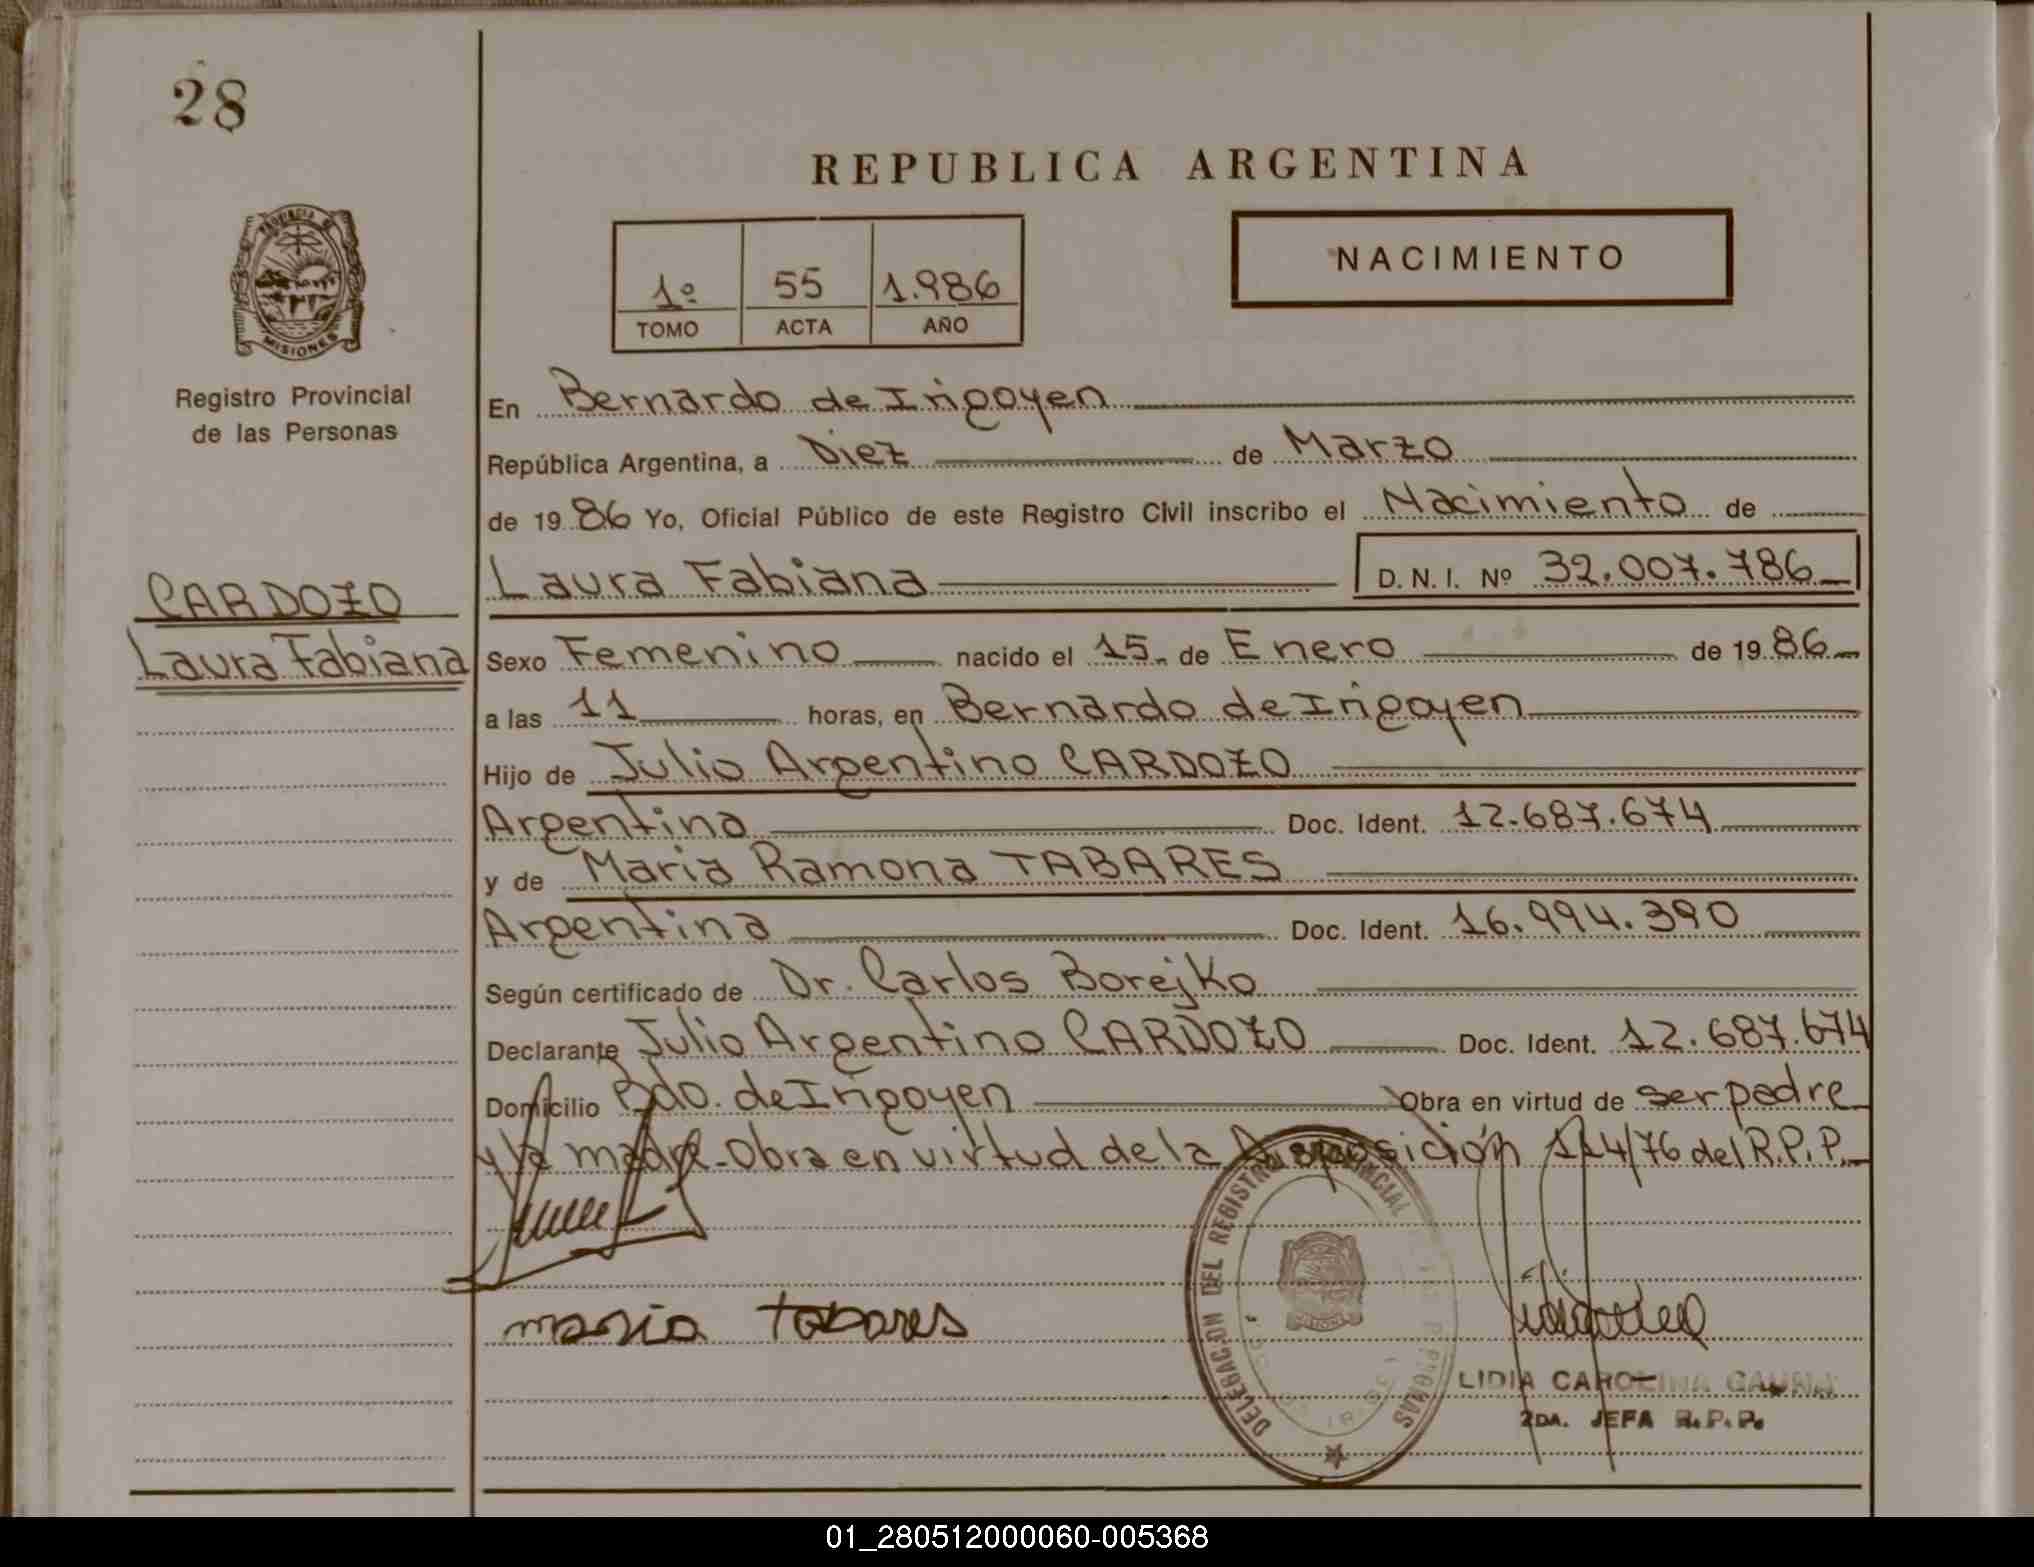 28
REPUBLICA ARGENTINA
NACIMIENTO
1º 55 1.986
TOMO ACTA AÑO
PROVINCIA DE
MISIONES
Registro Provincial
de las Personas
CARDOZO
Laura Fabiana
En Bernardo de Irigoyen
República Argentina, a Diez de Marzo
de 1986 Yo, Oficial Público de este Registro Civil inscribo el Nacimiento de
Laura Fabiana D.N.I. Nº 32.007.786
Sexo Femenino nacido el 15 de Enero de 1986
a las 11 horas, en Bernardo de Irigoyen
Hijo de Julio Argentino CARDOZO
Argentina Doc. Ident. 12.687.674
y de Maria Ramona TABARES
Argentina Doc. Ident. 16.994.390
Según certificado de Dr. Carlos Borejko
Declarante Julio Argentino CARDOZO Doc. Ident. 12.687.674
Domicilio Bdo. de Irigoyen Obra en virtud de ser padre
y la madre-Obra en virtud de la Disposición 114/76 del R.P.P.
maria tabares
DELEGACION DEL REGISTRO PROVINCIAL DE LAS PERSONAS
LIDIA CAROLINA
2DA. JEFA R.P.P.
01_280512000060-005368